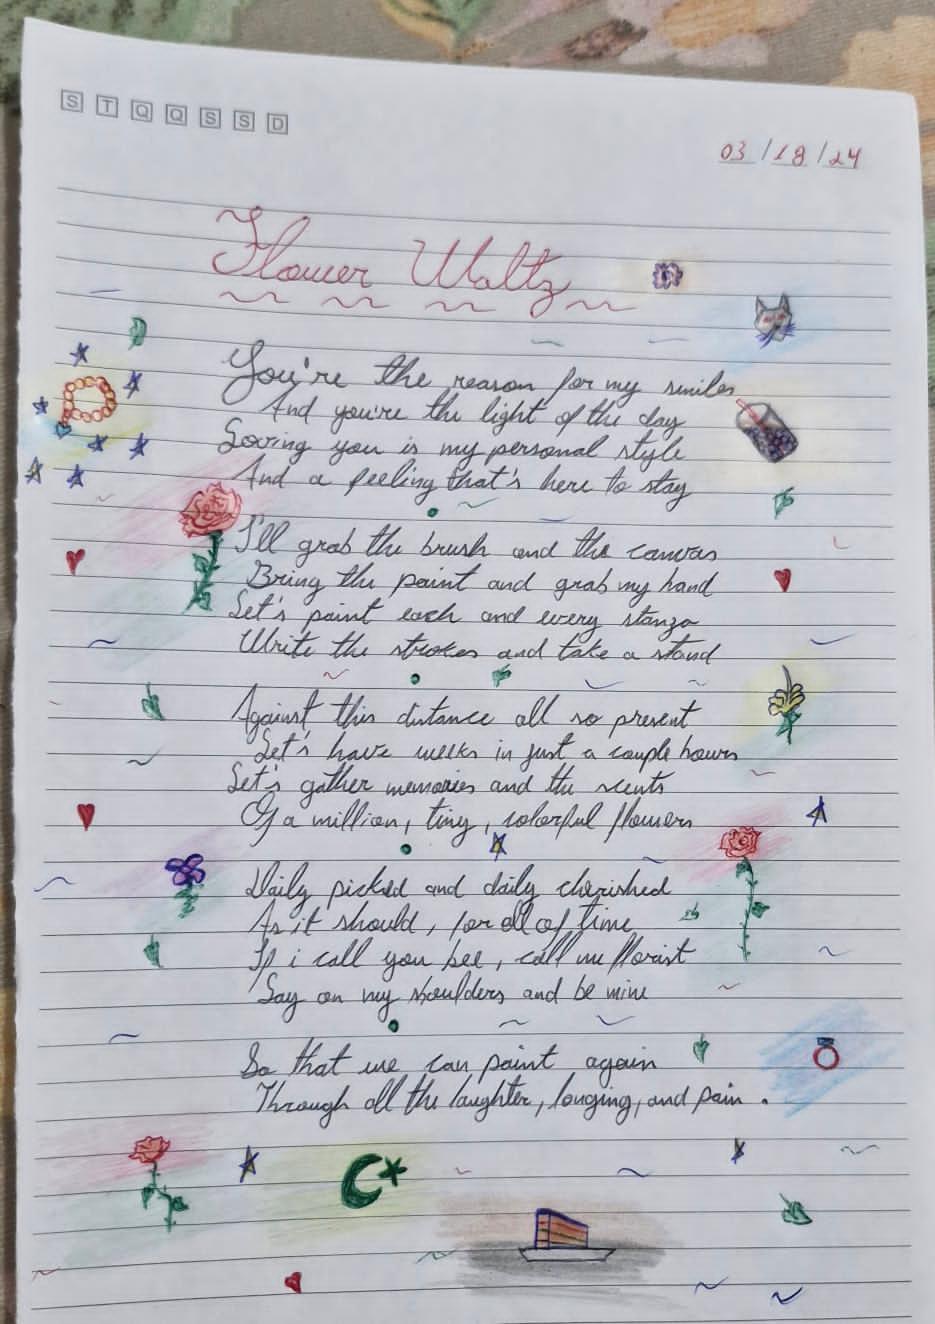 S T Q Q S S D
03/18/24
Flower Waltz
You're the reason for my smiles
And you're the light of the day
Loving you is my personal style
And a feeling that's here to stay
I'll grab the brush and the canvas
Bring the paint and grab my hand
Let's paint each and every stanza
Write the strokes and take a stand
Against this distance all so present
Let's have weeks in just a couple hours
Let's gather memories and the scents
Of a million, tiny, colorful flowers
Daily picked and daily cherished
As it should, for all of time
If i call you bee, call me florist
Lay on my shoulders and be mine
So that we can paint again
Through all the laughter, longing, and pain.